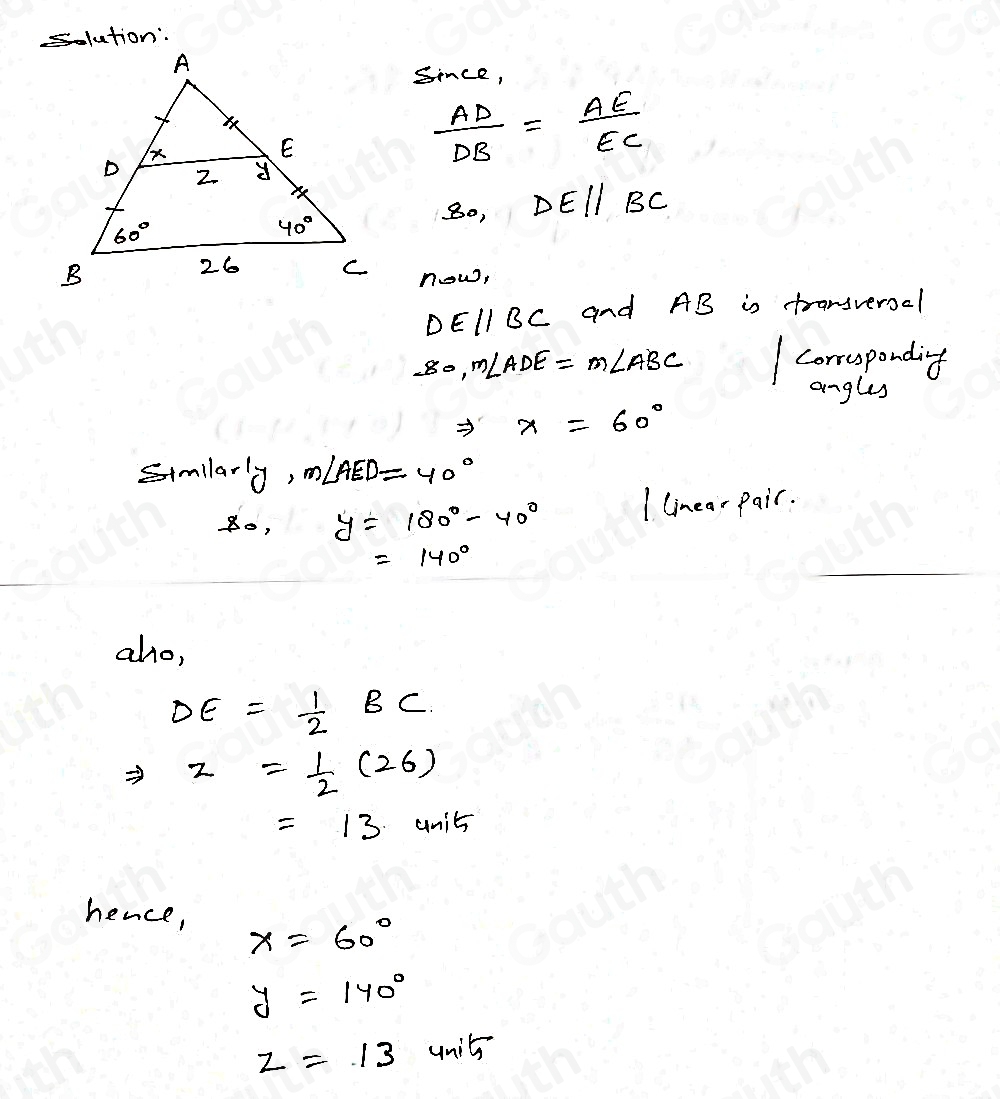 Solution:
A
D
x
E
z
y
60°
40°
B
26
C
Since,
AD/DB = AE/EC
So, DE || BC
now,
DE || BC and AB is transversal
So, m∠ADE = m∠ABC | Corresponding angles
⇒ x = 60°
Similarly, m∠AED = 40°
So, y = 180° - 40° | linear pair.
= 140°
also,
DE = 1/2 BC.
⇒ z = 1/2 (26)
= 13 units
hence,
x = 60°
y = 140°
z = 13 units
Gauth